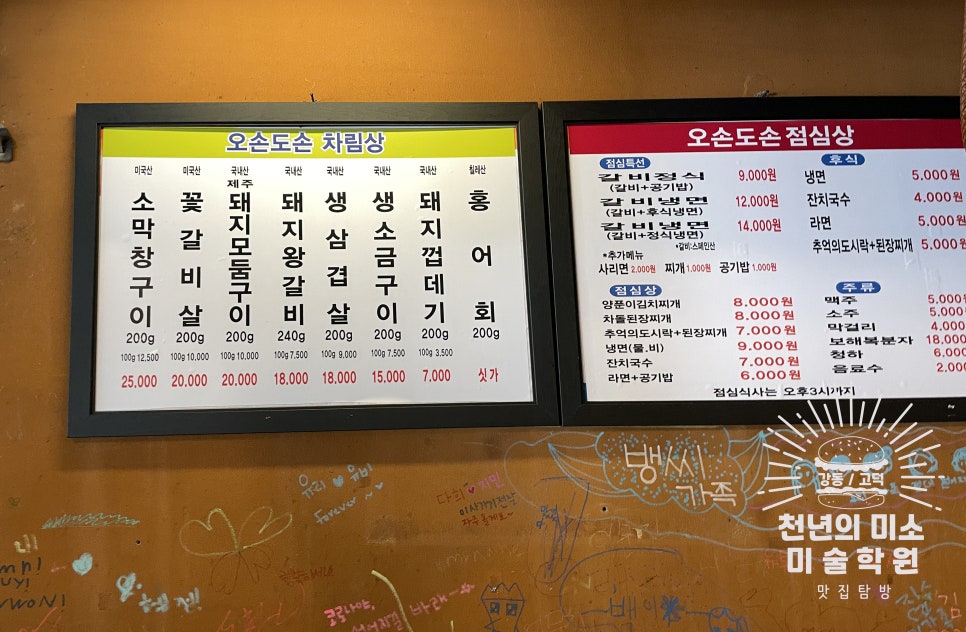 오손도손 차림상
미국산 미국산 국내산 국내산 국내산 국내산 국내산 칠레산
소막창구이
꽃갈비살
제주
돼지모둠구이
돼지왕갈비
생삼겹살
생소금구이
돼지껍데기
홍어회
200g 200g 200g 240g 200g 200g 200g 200g
100g 12,500 100g 10,000 100g 10,000 100g 7,500 100g 9,000 100g 7,500 100g 3,500
25,000 20,000 20,000 18,000 18,000 15,000 7,000 싯가
오손도손 점심상
점심특선
갈비정식 9,000원
(갈비+공기밥)
갈비냉면 12,000원
(갈비+후식냉면)
갈비냉면 14,000원
(갈비+정식냉면)
*갈비:스페인산
*추가메뉴
사리면 2,000원 찌개 1,000원 공기밥 1,000원
점심상
양푼이김치찌개 8,000원
차돌된장찌개 8,000원
추억의도시락+된장찌개 7,000원
냉면(물,비) 9,000원
잔치국수 7,000원
라면+공기밥 6,000원
후식
냉면 5,000원
잔치국수 4,000원
라면 5,000원
추억의도시락+된장찌개 5,000원
주류
맥주 5,000
소주 5,000
막걸리 4,000
보해복분자 18,000
청하 6,000
음료수 2,000
점심식사는 오후3시까지
뱅씨
가족
유리 ♥ 유비
forever ~
다희 ♥ 지민
강동 / 고덕
천년의 미소
미술학원
맛집탐방